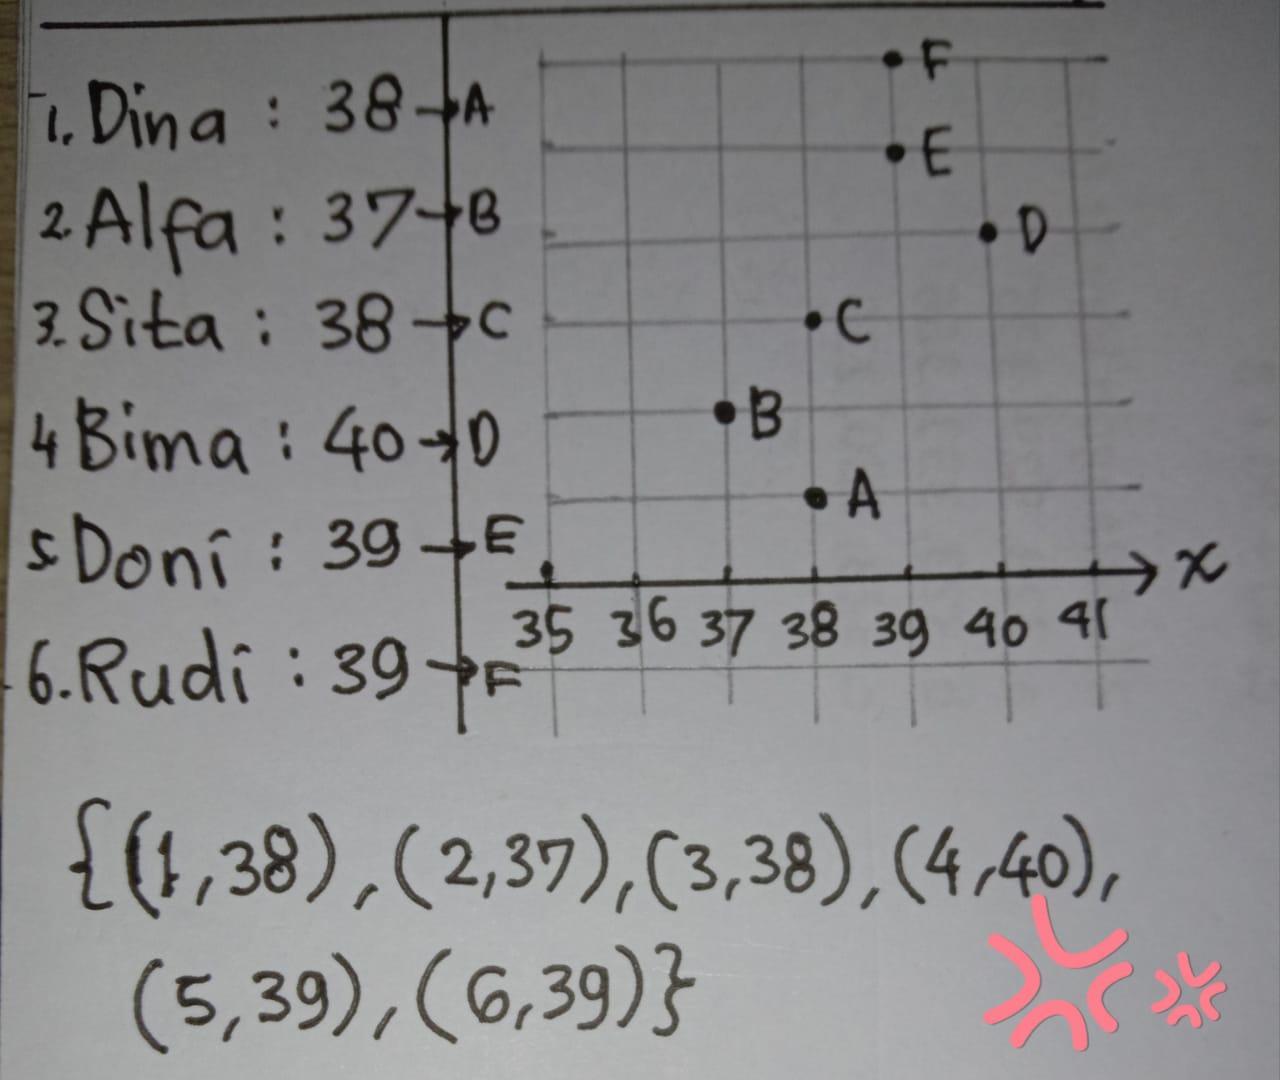 1. Dina : 38 → A
2. Alfa : 37 → B
3. Sita : 38 → C
4 Bima : 40 → D
5 Doni : 39 → E
6. Rudi : 39 → F
F
E
D
C
B
A
x
35 36 37 38 39 40 41
{(1,38), (2,37), (3,38), (4,40),
(5,39), (6,39)}